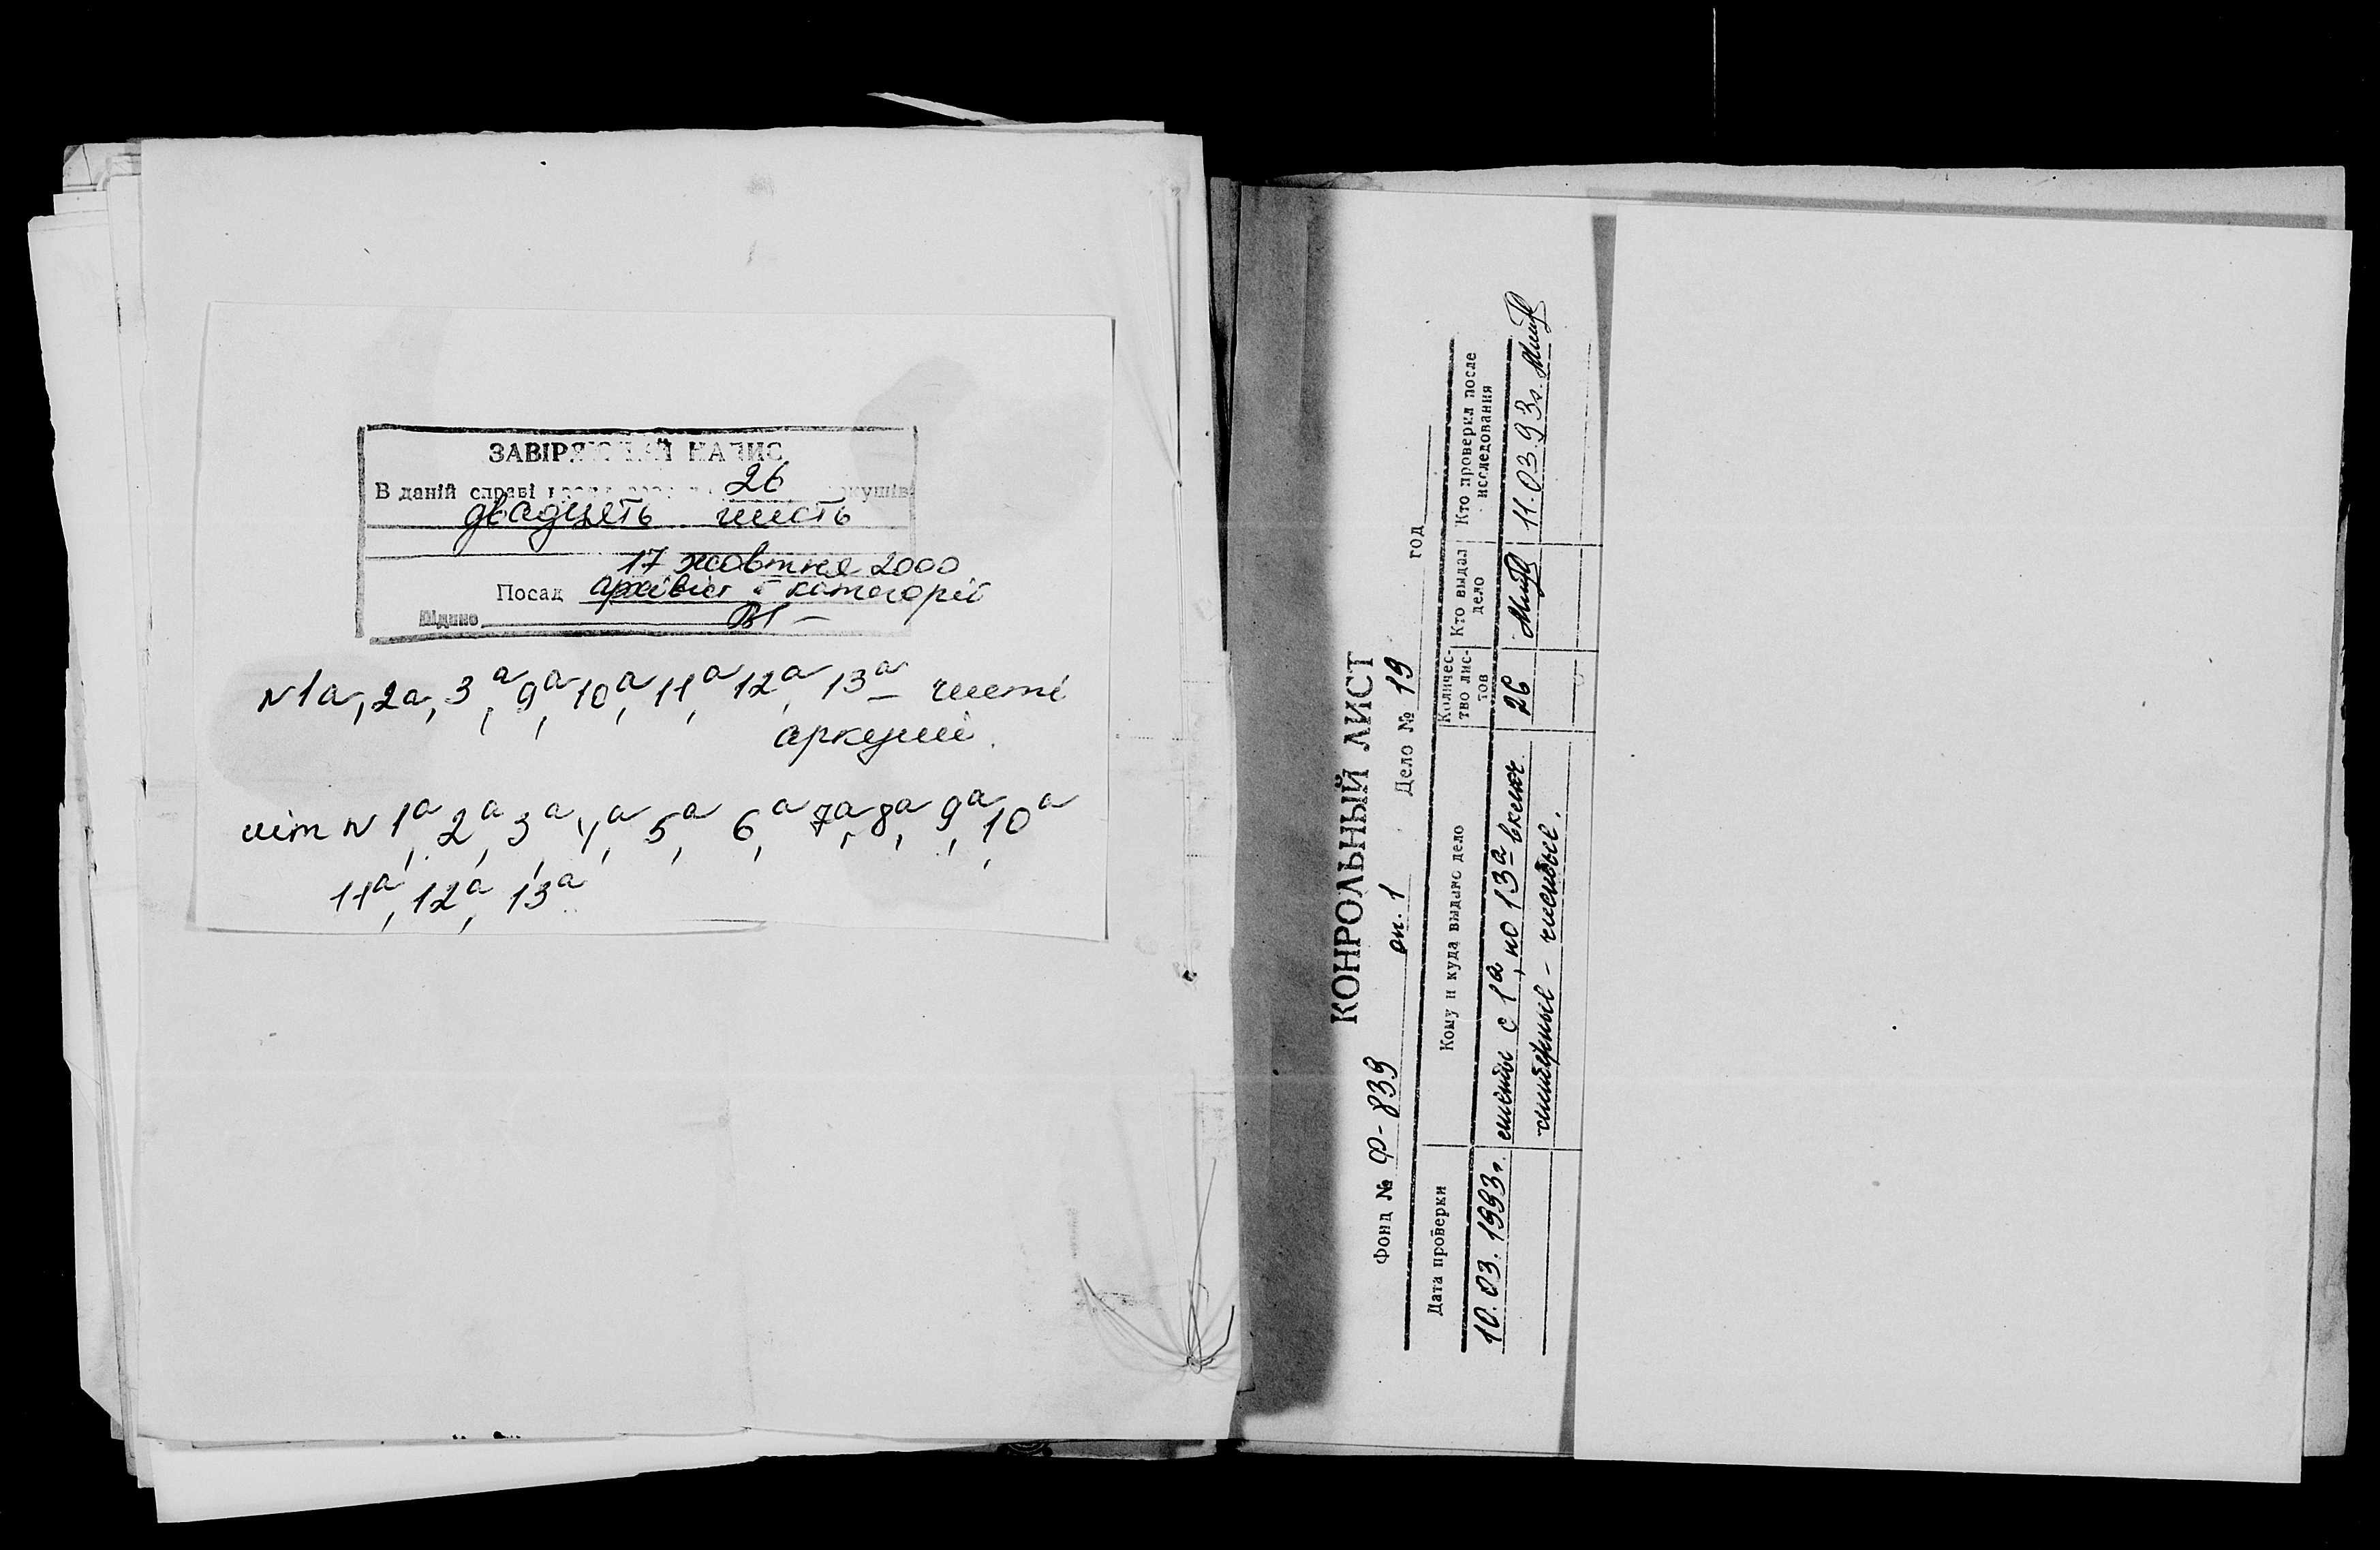 ЗАВІРЯЮЧИЙ НАПИС
В даній справі 26 аркушів
двадцять шість
17 жовтня 2000
Посад архівіст категорії
Підпис
N 1а, 2а, 3а, 9а, 10а, 11а, 12а, 13а – чисті
аркуші.
літ N 1а, 2а, 3а, 4а, 5а, 6а, 7а, 8а, 9а, 10а
11а, 12а, 13а
КОНРОЛЬНЫЙ ЛИСТ
Фонд № Ф-839 оп. 1 Дело № 19 год
Дата проверки
Кому и куда выдано дело
Количес-
тво лис-
тов
Кто выдал
дело
Кто проверил после
исследования
10.03.1993г. листы с 1а, по 13а включ. 26 11.03.93г.
литерные – чистые.